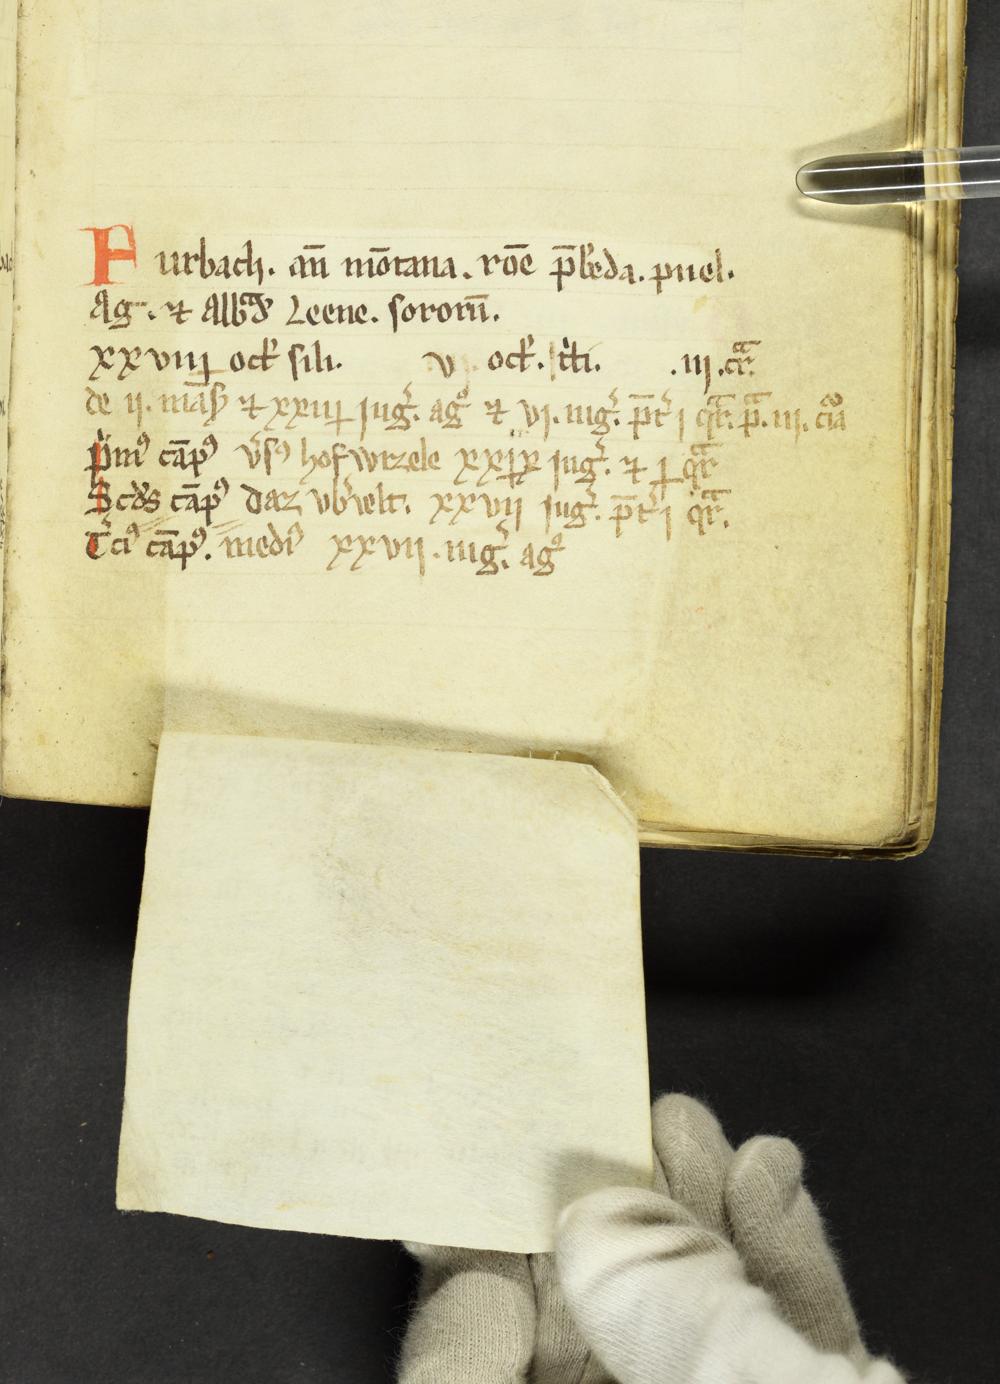 Furbach. añ mōtana. roē p̄beda. puel.
Ag. ⁊ Alb Leene. sororū.
xxviiij ock sili. v ock. t̓ti. .iij.cͣr.
de ij. mās ⁊ xxiiij jug̓. agͦ ⁊ vj. iug̓. p̄t̓ j qͣr. p̄. iij.
p̓mꝰ cāpꝰ v̓sꝰ hofwrzele xxjx jug̓. ⁊ j qͣr
Scd̓s cāpꝰ daz vb̓velt. xxvij jug̓. p̄t̓ j qͣr.
T̓ciꝰ cāpꝰ. mediꝰ xxvij. iug̓. agͦ